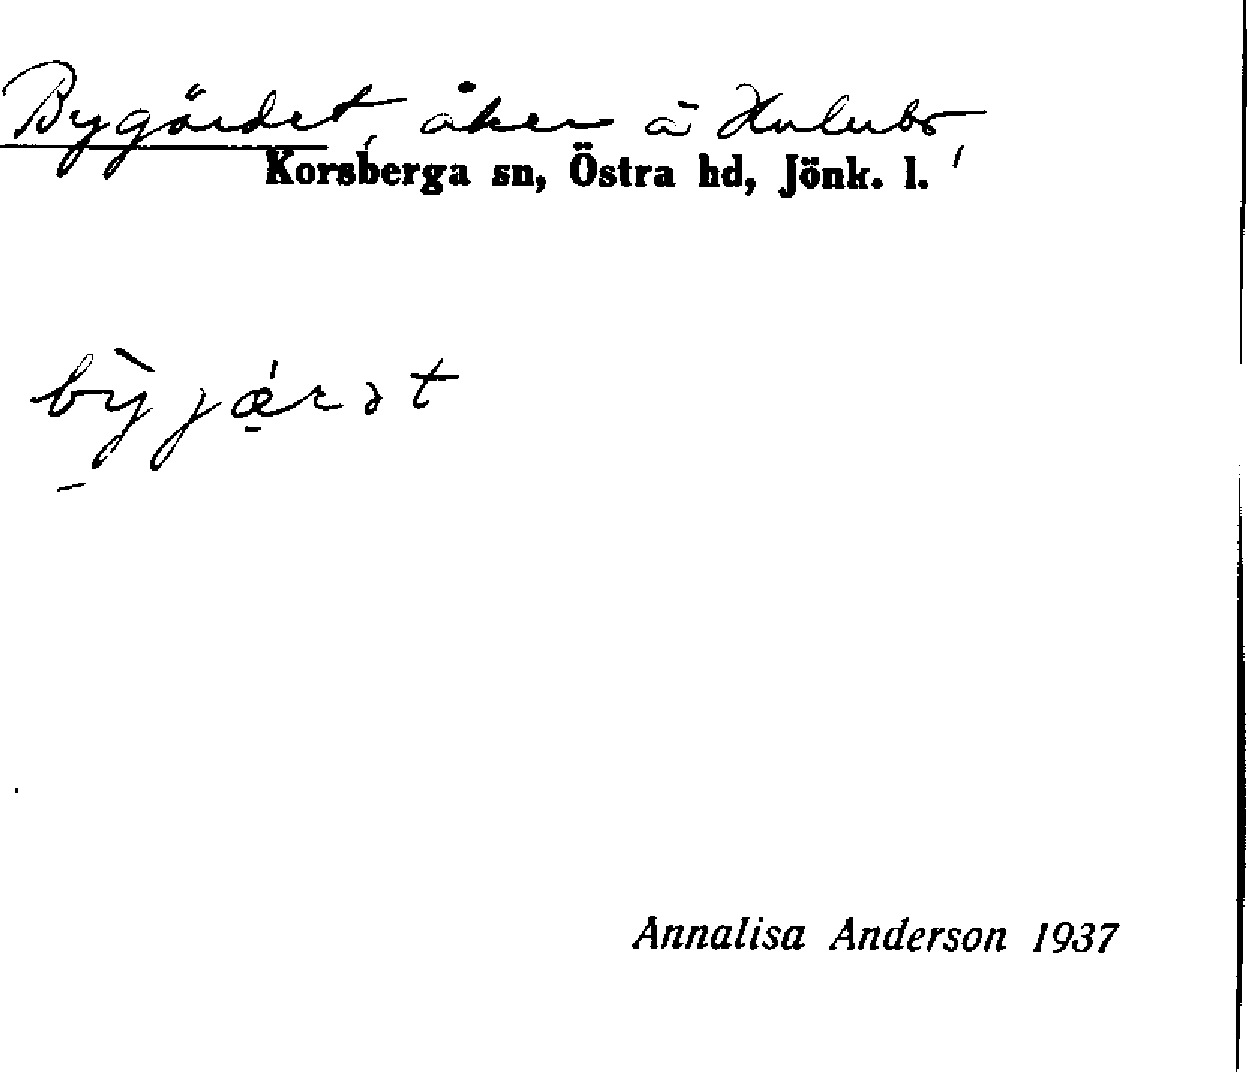 Bygärdet, åker å Hulubo,
Korsberga sn, Östra hd, Jönk. l.
bỳ̠jǽ̠rət
Annalisa Anderson 1937